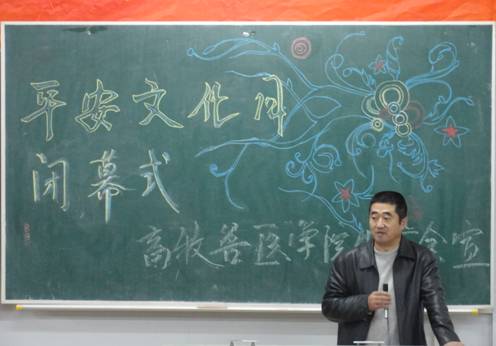 平安文化月
闭幕式
高牧兽医学院 会宣